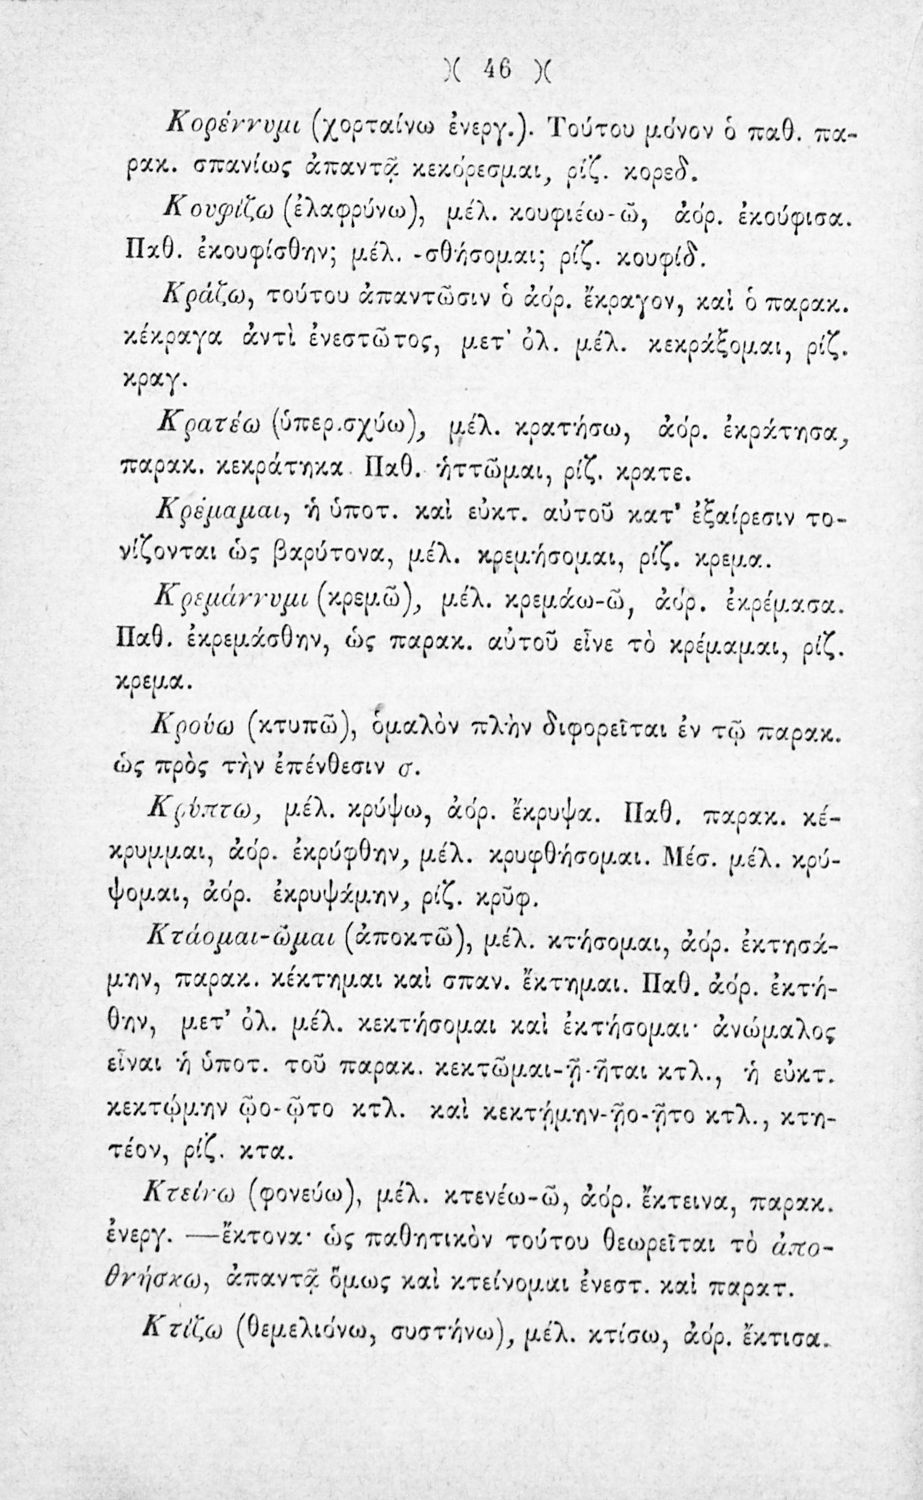 )( 46 )(
Κορέννυμι (χορταίνω ἐνεργ.). Τούτου μόνον ὁ παθ. πα-
ρακ. σπανίως ἀπαντᾷ κεκόρεσμαι, ρίζ. κορεδ.
Κουφίζω (ἐλαφρύνω), μέλ. κουφιέω-ῶ, ἀόρ. ἐκούφισα.
Παθ. ἐκουφίσθην; μέλ. -σθήσομαι; ρίζ. κουφίδ.
Κράζω, τούτου ἀπαντῶσιν ὁ ἀόρ. ἔκραγον, καὶ ὁ παρακ.
κέκραγα ἀντὶ ἐνεστῶτος, μετ' ὀλ. μέλ. κεκράξομαι, ρίζ.
κραγ.
Κρατέω (ὑπερ.σχύω), μέλ. κρατήσω, ἀόρ. ἐκράτησα,
παρακ. κεκράτηκα. Παθ. ἡττῶμαι, ρίζ. κρατε.
Κρέμαμαι, ἡ ὑποτ. καὶ εὐκτ. αὐτοῦ κατ' ἐξαίρεσιν το-
νίζονται ὡς βαρύτονα, μέλ. κρεμήσομαι, ρίζ. κρεμα.
Κρεμάννυμι (κρεμῶ), μέλ. κρεμάω-ῶ, ἀόρ. ἐκρέμασα.
Παθ. ἐκρεμάσθην, ὡς παρακ. αὐτοῦ εἶνε τὸ κρέμαμαι, ρίζ.
κρεμα.
Κρούω (κτυπῶ), ὁμαλὸν πλὴν διφορεῖται ἐν τῷ παρακ.
ὡς πρὸς τὴν ἐπένθεσιν σ.
Κρύπτω, μέλ. κρύψω, ἀόρ. ἔκρυψα. Παθ. παρακ. κέ-
κρυμμαι, ἀόρ. ἐκρύφθην, μέλ. κρυφθήσομαι. Μέσ. μέλ. κρύ-
ψομαι, ἀόρ. ἐκρυψάμην, ρίζ. κρῦφ.
Κτάομαι-ῶμαι (ἀποκτῶ), μέλ. κτήσομαι, ἀόρ. ἐκτησά-
μην, παρακ. κέκτημαι καὶ σπαν. ἔκτημαι. Παθ. ἀόρ. ἐκτή-
θην, μετ' ὀλ. μέλ. κεκτήσομαι καὶ ἐκτήσομαι· ἀνώμαλος
εἶναι ἡ ὑποτ. τοῦ παρακ. κεκτῶμαι-ῇ-ῆται κτλ., ἡ εὐκτ.
κεκτῴμην ῷο-ῷτο κτλ. καὶ κεκτῄμην-ῇο-ῇτο κτλ., κτη-
τέον, ρίζ. κτα.
Κτείνω (φονεύω), μέλ. κτενέω-ῶ, ἀόρ. ἔκτεινα, παρακ.
ἐνεργ. —ἔκτονα· ὡς παθητικὸν τούτου θεωρεῖται τὸ ἀπο-
θνήσκω, ἀπαντᾷ ὅμως καὶ κτείνομαι ἐνεστ. καὶ παρατ.
Κτίζω (θεμελιόνω, συστήνω), μέλ. κτίσω, ἀόρ. ἔκτισα.